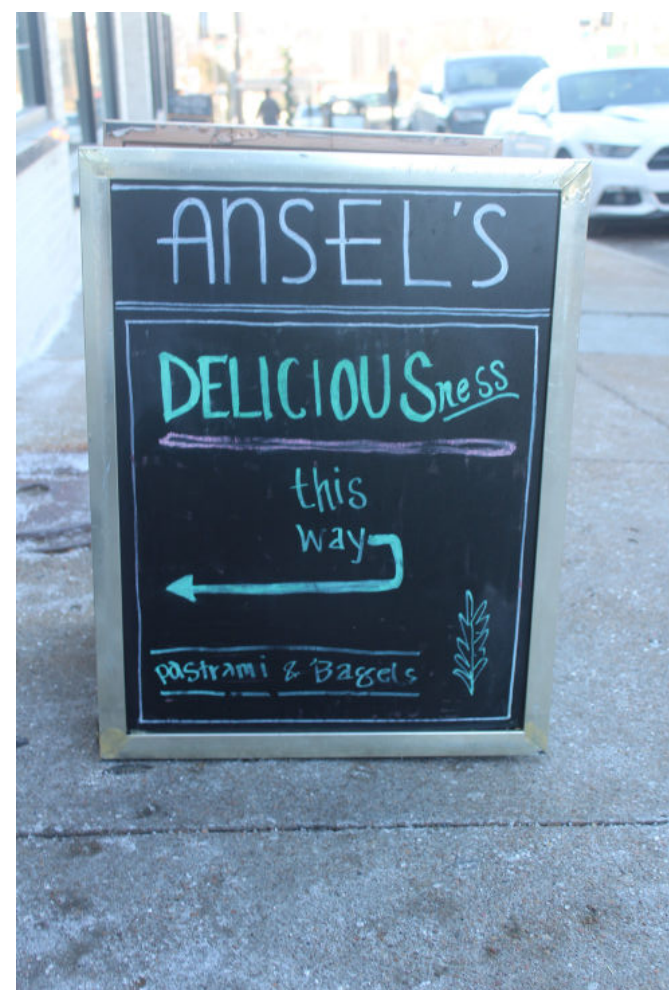 ANSEL'S
DELICIOUSness
this
way
pastrami & Bagels